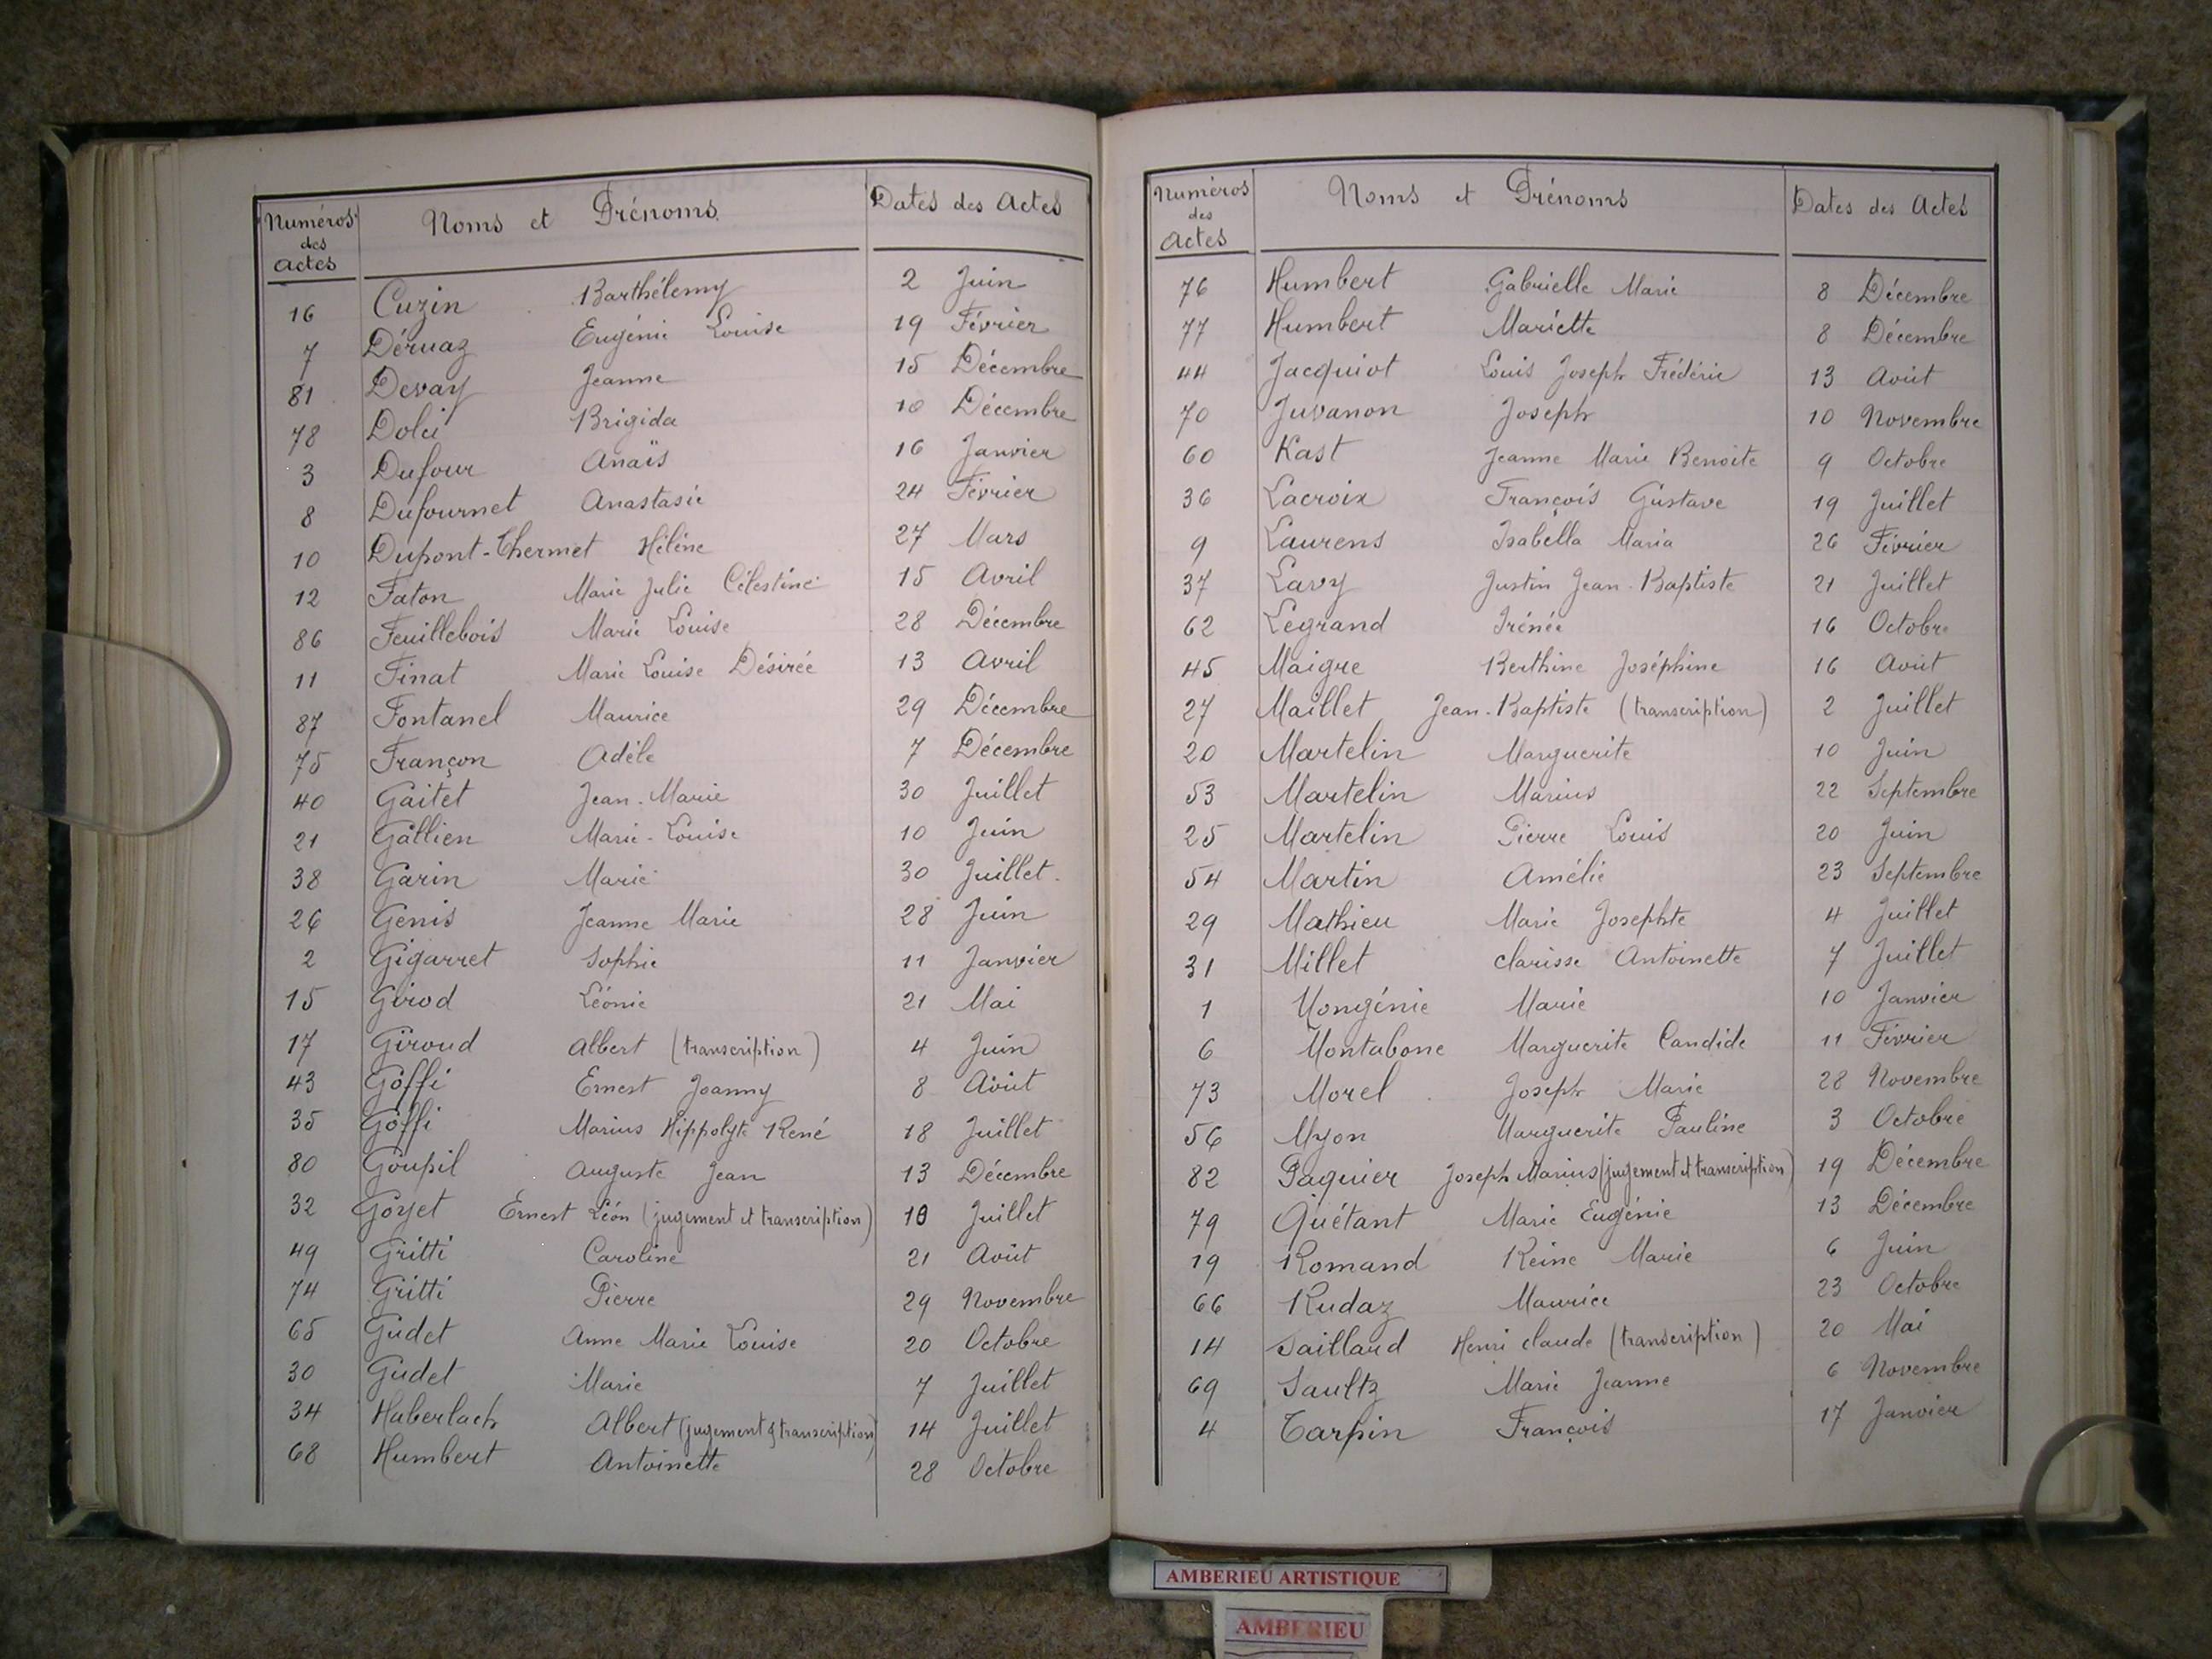 Numéros des Actes Noms et Prénoms Dates des Actes
16 Cuzin Barthélemy 2 Juin
7 Déruaz Eugénie Louise 19 Février
81 Devay Jeanne 15 Décembre
78 Dolci Brigida 10 Décembre
3 Dufour Anaïs 16 Janvier
8 Dufournet Anastasie 24 Février
10 Dupont-Thermet Hélène 27 Mars
12 Faton Marie Julie Célestine 15 Avril
86 Feuillebois Marie Louise 28 Décembre
11 Finat Marie Louise Désirée 13 Avril
87 Fontanel Maurice 29 Décembre
75 Françon Adèle 7 Décembre
40 Gaitet Jean-Marie 30 Juillet
21 Gallien Marie-Louise 10 Juin
38 Garin Marie 30 Juillet
26 Genis Jeanne Marie 28 Juin
2 Gigarret Sophie 11 Janvier
15 Girod Léonie 21 Mai
17 Giroud Albert (transcription) 4 Juin
43 Goffi Ernest Joanny 8 Août
35 Goffi Marius Hippolyte René 18 Juillet
80 Goupil Auguste Jean 13 Décembre
32 Goyet Ernest Léon (jugement et transcription) 10 Juillet
49 Gritti Caroline 21 Août
74 Gritti Pierre 29 Novembre
65 Gudet Anne Marie Louise 20 Octobre
30 Gudet Marie 7 Juillet
34 Haberlach Albert (jugement & transcription) 14 Juillet
68 Humbert Antoinette 28 Octobre
Numéros des Actes Noms et Prénoms Dates des Actes
76 Humbert Gabrielle Marie 8 Décembre
77 Humbert Mariette 8 Décembre
44 Jacquiot Louis Joseph Frédéric 13 Août
70 Juvanon Joseph 10 Novembre
60 Kast Jeanne Marie Benoite 9 Octobre
36 Lacroix François Gustave 19 Juillet
9 Laurens Isabella Maria 26 Février
37 Lavy Justin Jean-Baptiste 21 Juillet
62 Legrand Irénée 16 Octobre
45 Maigre Berthine Joséphine 16 Août
27 Maillet Jean-Baptiste (transcription) 2 Juillet
20 Martelin Marguerite 10 Juin
53 Martelin Marius 22 Septembre
25 Martelin Pierre Louis 20 Juin
54 Martin Amélie 23 Septembre
29 Mathieu Marie Josephte 4 Juillet
31 Millet Clarisse Antoinette 7 Juillet
1 Mongénie Marie 10 Janvier
6 Montabone Marguerite Candide 11 Février
73 Morel Joseph Marie 28 Novembre
56 Myon Marguerite Pauline 3 Octobre
82 Paquier Joseph Marius (jugement et transcription) 19 Décembre
79 Quétant Marie Eugénie 13 Décembre
19 Romand Reine Marie 6 Juin
66 Rudaz Maurice 23 Octobre
14 Saillard Henri Claude (transcription) 20 Mai
69 Saultz Marie Jeanne 6 Novembre
4 Tarpin François 17 Janvier
AMBERIEU ARTISTIQUE
AMBERIEU